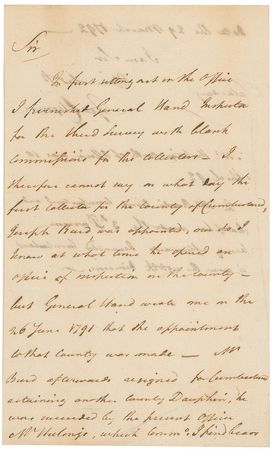 Sir
In first setting out in the Office
I furnished General Hand Inspector
for the third Survey with blank
Commissions for the Collectors – I
therefore cannot say on what day the
first Collector for the County of Cumberland,
Joseph Burd was appointed, nor do I
know at what time he opened an
Office of inspection in the County –
but General Hand wrote me on the
26 June 1791 that the appointment
to that County was made – Mr
Burd afterwards resigned for Cumberland
retaining another County Dauphin, he
was succeeded by the present Officer
Mr Hulings, which Commn. I find bears